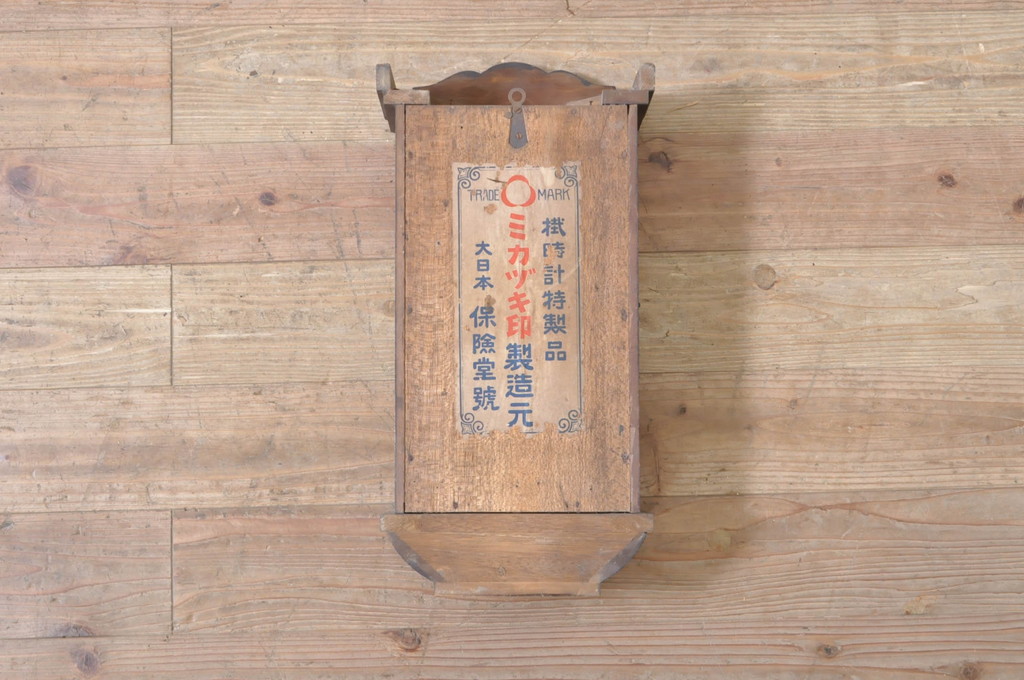 TRADE MARK
掛時計特製品
ミカヅキ印製造元
大日本 保險堂號